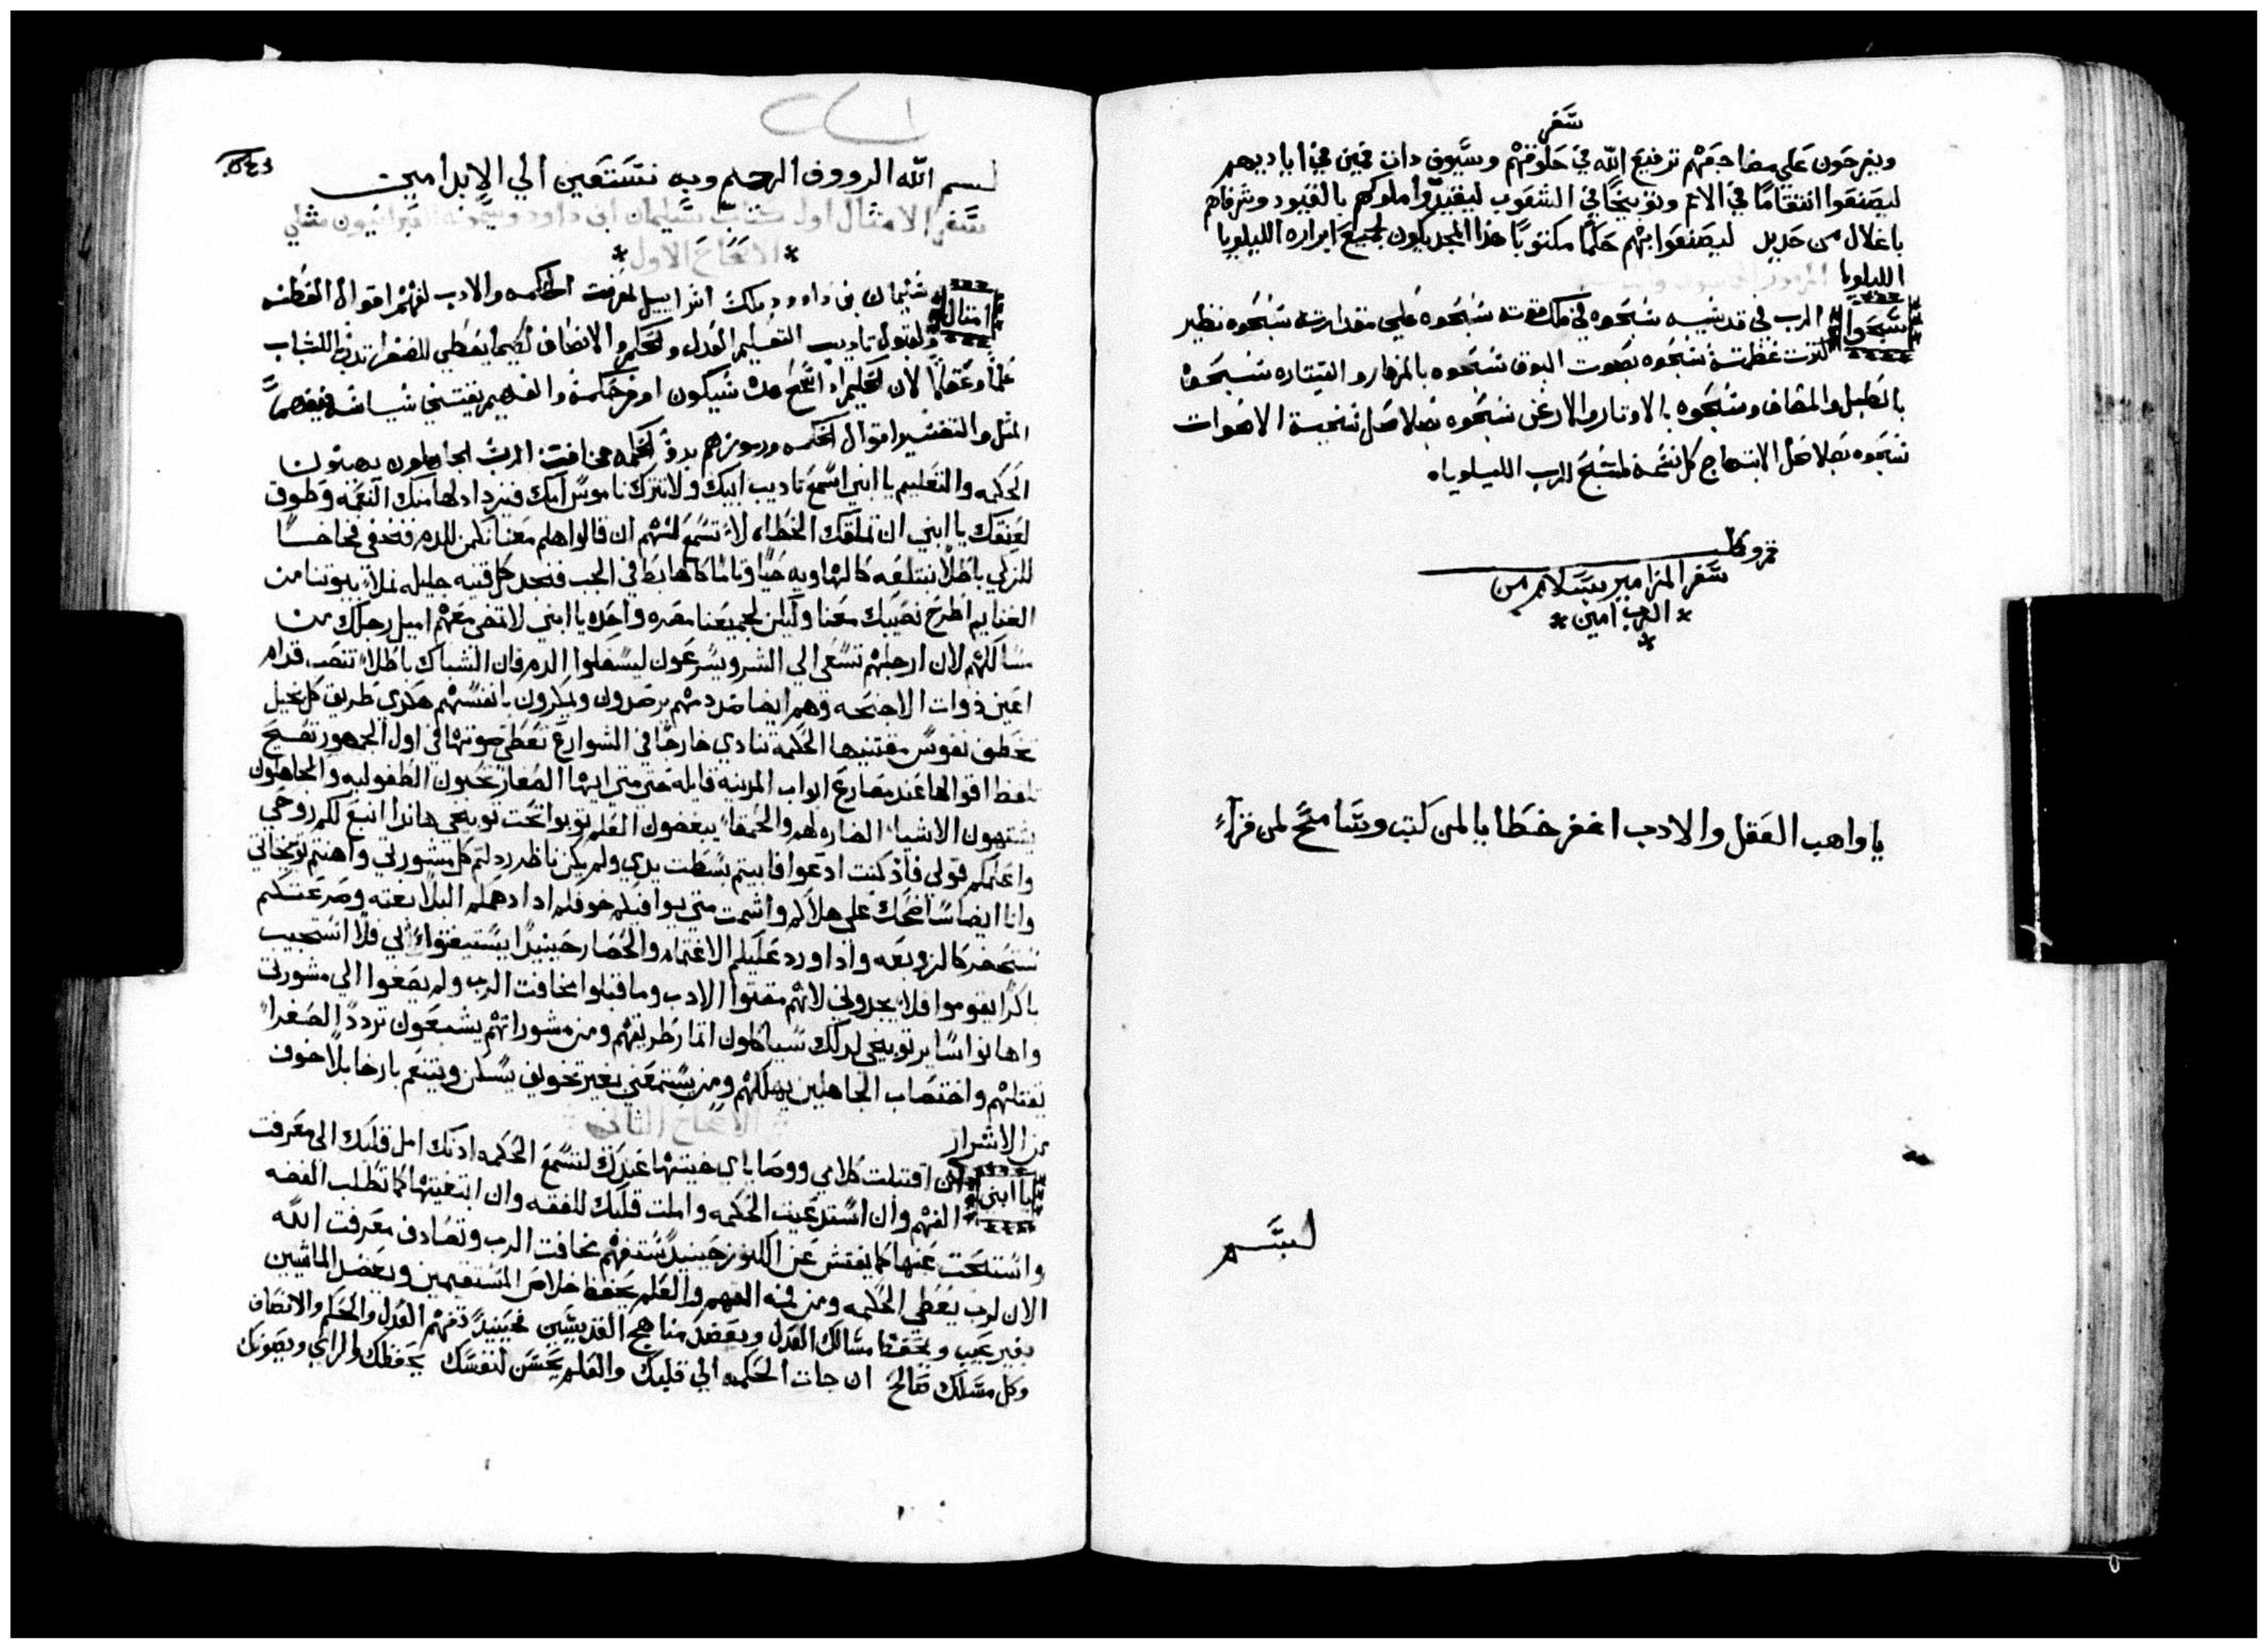 سفر
ويفرحون علي مضاجعهم ترفيع الله في حلوقهم وسيوف ذات فمين في اياديهم
ليصنعوا انتقامًا في الامم وتوبيخًا في الشعوب ليقيدوا ملوكهم بالقيود وشرفاهم
باغلال من حديد ليصنعوا بهم حكمًا مكتوبًا هذا المجد يكون لجميع ابراره الليلويا
الليلويا
سبحوا الرب في قديسيه سبحوه في فلك قوته سبحوه علي مقدارته سبحوه نظير
كثرت عظمته سبحوه بصوت البوق سبحوه بالمزمار والقيتاره سبحوه
بالطبل والمصاف وسبحوه بالاوتار والارغن سبحوه بصلاصل نغمة الاصوات
سبحوه بصلاصل الابتهاج كل نسمه لتسبح للرب الليلوياه
تم وكمل
سفر المزامير بسلام من
* الرب امين *
يا واهب العقل والادب اغفر خطايا لمن كتب وسامح لمن قراء
لبسم
بسم الله الرووف الرحيم وبه نستعين الي الابد امين
سفر الامثال اول كتاب سليمان ابن داود ويسمونه العبرانيون مثلي
* الاصحاح الاول *
امثال سليمان بن داوود ملك اسراييل لمعرفت الحكمه والادب لفهم اقوال الفطنه
ولقبول تاديب التعليم العدل والحكم والانصاف لكيما يعطي للصغرا تدبيرًا للشاب
علمًا وعقلًا لان الحكيم اذا سمع هذه سيكون اوفر حكمة والفهيم يقتني سياسة فيفهم
المثل والتفسير اقوال الحكمه ورموزهم بدو الحكمه مخافت الرب الجاهلون يهينون
الحكمه والتعليم يا ابني اسمع تاديب ابيك ولا تترك ناموس امك فيزداد لهامتك النعمه وطوق
لعنقك يا ابني ان تملقك الخطاه لا تسمع لهم ان قالوا هلم معنا نكمن للدم فنخفي فخاخًا
للزكي باطلًا نبتلعه كالهاويه حيًا وتامًا كالهابط في الجب فنجد كل قنيه جليله نملا بيوتنا من
الغنايم اطرح نصيبك معنا وليكن لجميعنا صره واحده يا ابني لا تمضي معهم اميل رجلك من
مسالكهم لان ارجلهم تسعي الي الشر ويسرعون ليسفكوا الدم فان الشباك باطلًا تنصب قدام
اعين ذوات الاجنحه وهم ايضا ضد دمهم يرصدون ويمكرون بانفسهم هكذي طريق كل بخيل
تخطف نفوس مقتنيها الحكمة تنادي خارجًا في الشوارع تعطي صوتها في اول الجمهور تصيح
تلفظ اقوالها عند مصارع ابواب المدينة قايله حتي متي ايها الصغار تحبون الطفوليه والجاهلون
يشتهون الاشيا الضاره لهم والحمقا يبغضون العلم توبوا تحت توبيخي هاندا انبع لكم روحي
واعلمكم قولي فاذ كنت ادعوا فابيتم بسطت يدي ولم يكن ناظر رددتم كل مشورتي واهنتم توبيخاتي
وانا ايضا ساضحك علي هلاككم واشمت متي يوافيكم خوفكم اذا دهمكم البلا بغته وصرعتكم
تستحضر كالزوبعه واذا ورد عليكم الاغتمام والحصار حينيدًا يستغيثوا الي فلا استجيب
باكرًا يقوموا فلا يجدوني لانهم مقتوا الادب وما قبلوا مخافت الرب ولم يصغوا الي مشورتي
واهانوا ساير توبيخي لدلك سياكلون اتمار طريقهم ومن مشوراتهم يشبعون تردد الصغرا
تقتلهم واختصاب الجاهلين يهلكهم ومن يستمعني بغير تخويف يسكن ويتنعم بارخا بلا خوف
من الاشرار
الاصحاح الثاني
يا ابني ان اقتبلت كلامي ووصاياي خبيتها عندك لتسمع الحكمه ادنك امل قلبك الي معرفت
الفهم وان استدعيت الحكمه واملت قلبك للفقه وان ابتغيتها كما تطلب الفضه
واستبحت عنها كما يفتش عن الكنوز حينيدً ستفهم مخافت الرب وتصادف معرفت الله
الان لرب يعطي الحكمه ومن فمه الفهم والعلم يحفظ خلاص المستقيمين ويعضد الماشيين
بغير عيب ويحفظ مسالك العدل ويعضد مناهج القديسين فحينيدً تفهم العدل والحكم والانصاف
وكل مسلك صالح ان جات الحكمه الي قلبك والعلم يحسن لنفسك يحفظك الراي ويصونك